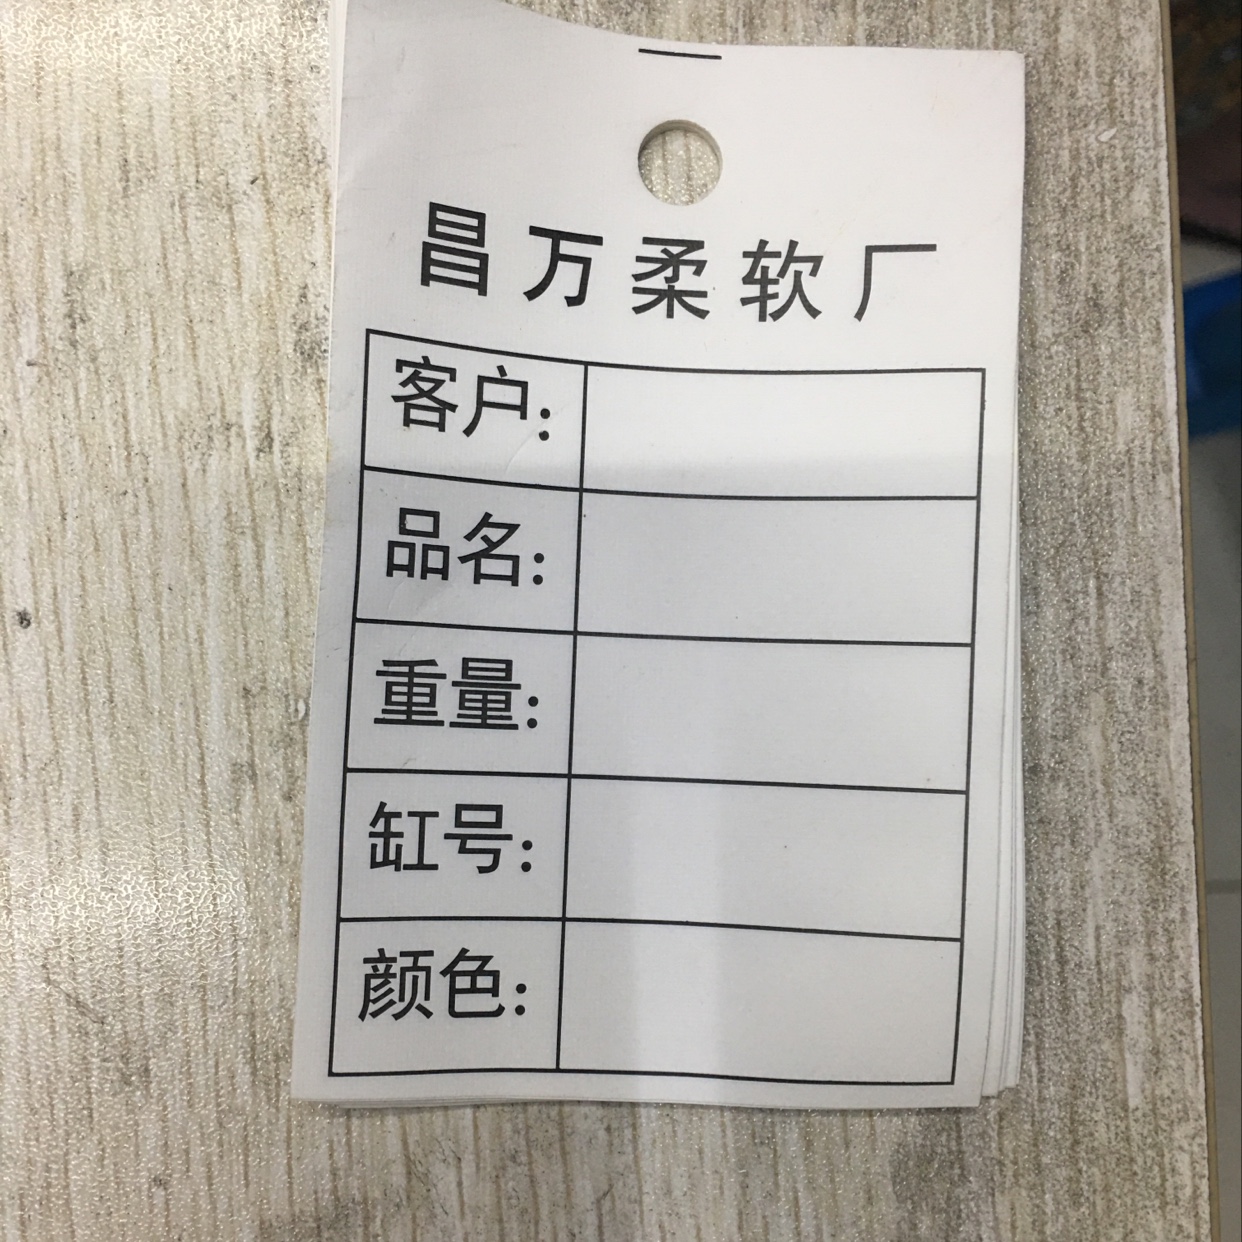 昌万柔软厂
客户:
品名:
重量:
缸号:
颜色: